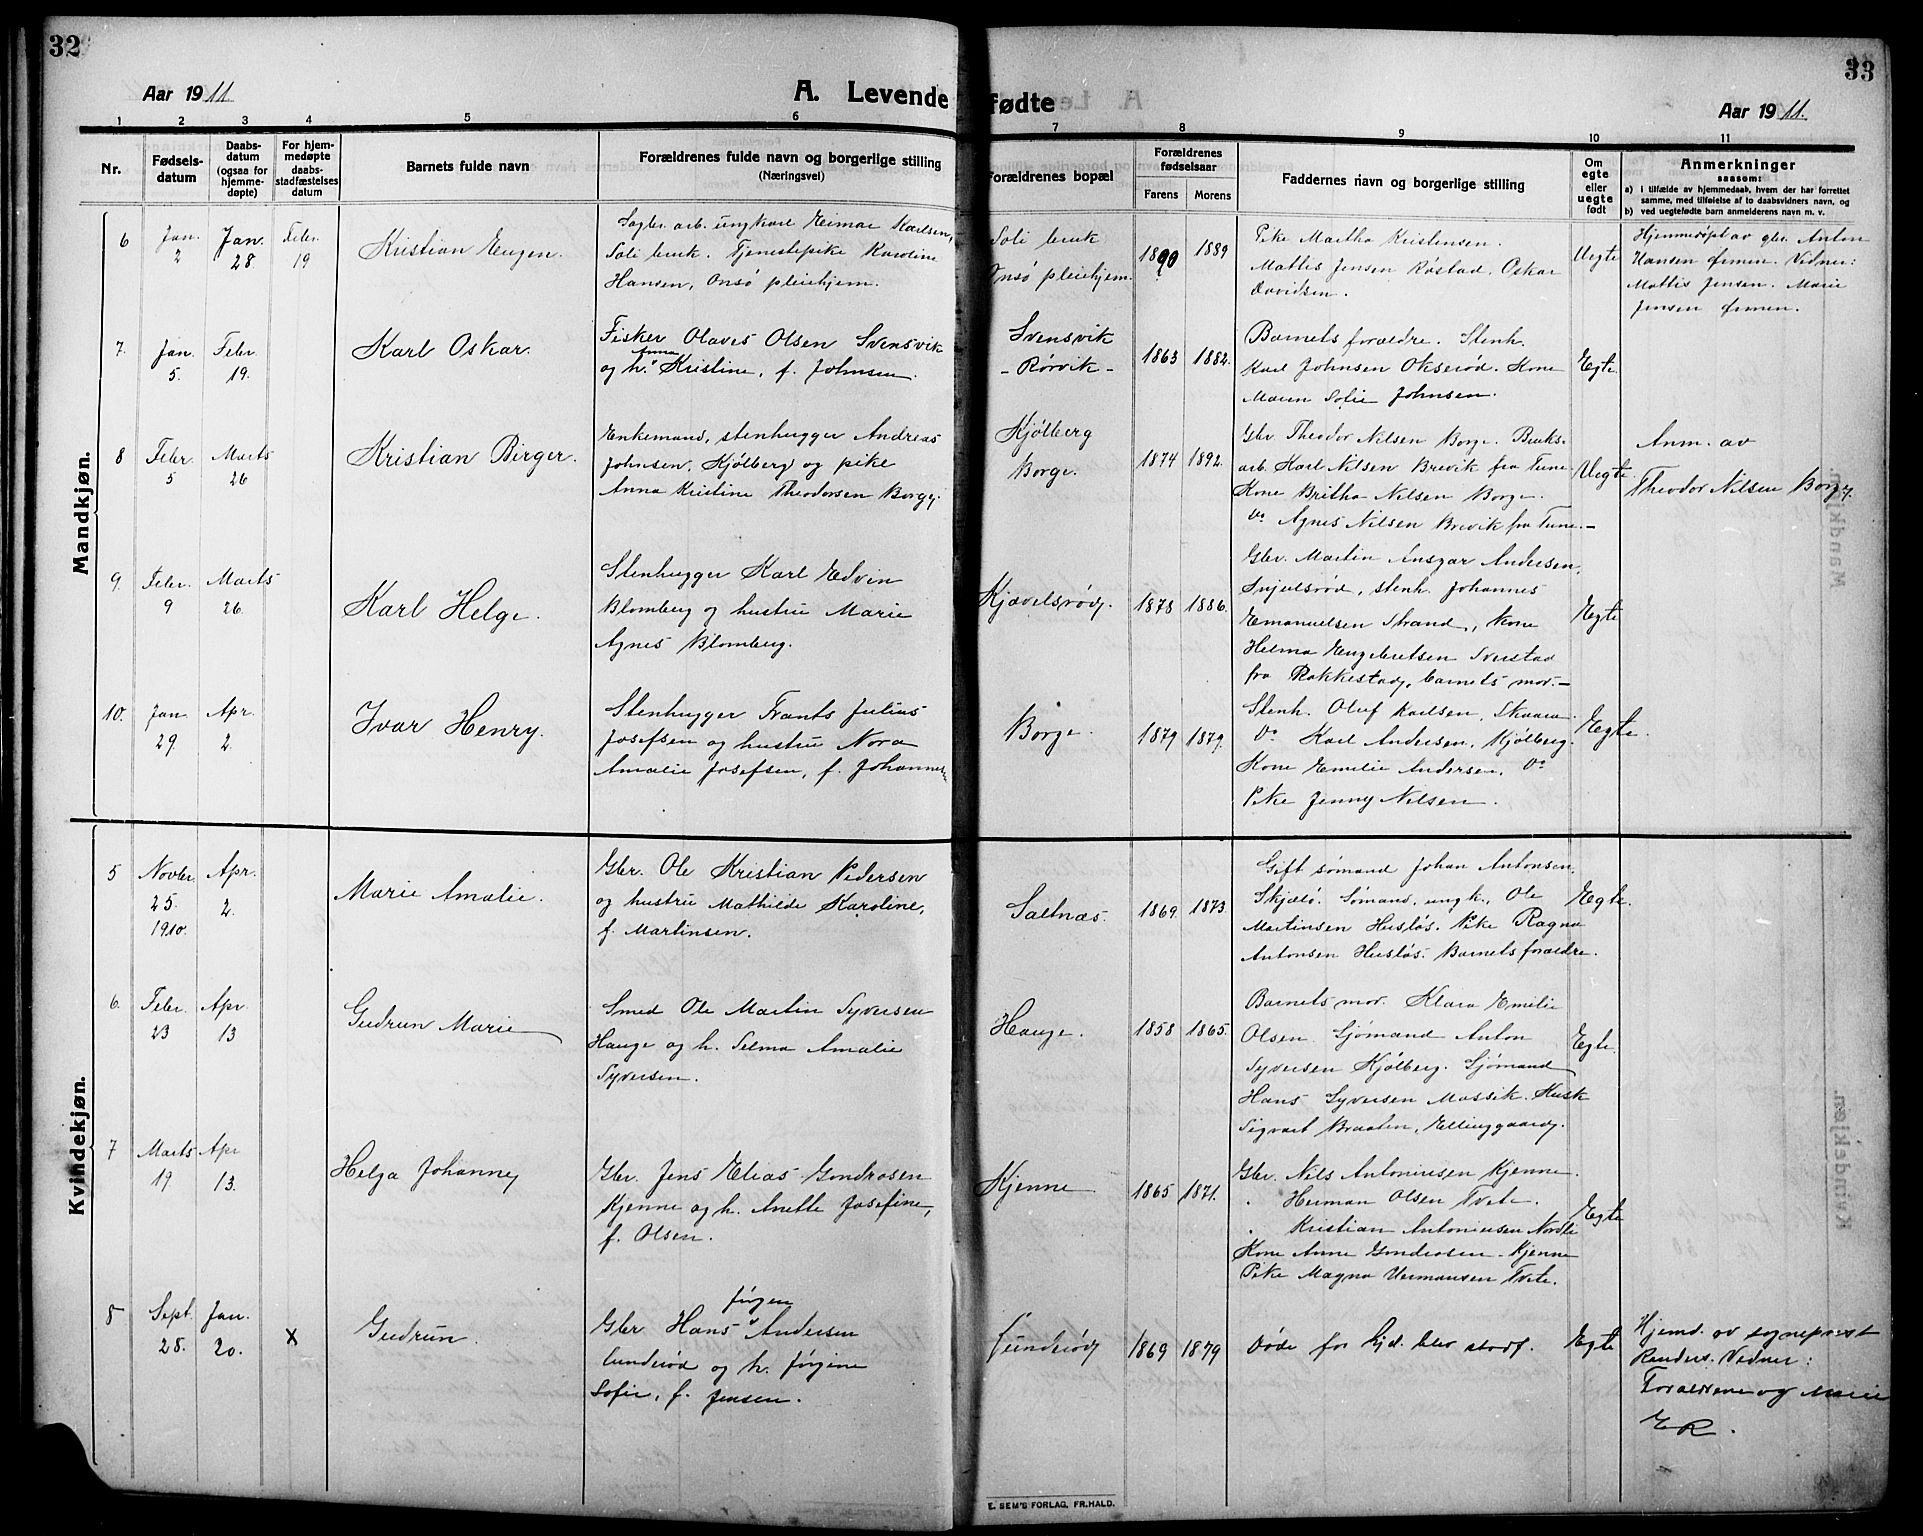 32
33
Aar 1911
A. Levende fødte
Aar 1911.
1 2 3 4 5 6 7 8 9 10 11
Nr.
Fødsels-
datum
Daabs-
datum
(ogsaa for
hjemme-
døpte)
For hjem-
medøpte
daabs-
stadfæstelses
datum
Barnets fulde navn
Forældrenes fulde navn og borgerlige stilling
(Næringsvei)
Forældrenes bopæl
Forældrenes
fødselsaar
Farens Morens
Faddernes navn og borgerlige stilling
Om
egte
eller
uegte
født
Anmerkninger
saasom:
a) i tilfælde av hjemmedaab, hvem der har forrettet
samme, med tilføielse af to daabsvidners navn, og
b) ved uegtefødte barn anmelderens navn m. v.
Mandkjøn.
6
Jan.
2
Jan.
28.
Febr.
19
Kristian Eugen.
Sagbr. arb. ungkarl Eimar Karlsen,
Soli bruk. Tjenestepike Karoline
Hansen, Onsø pleiehjem.
Soli bruk
Onsø pleiehjem.
1890
1889
Pike Martha Kristensen.
Mattis Jensen Røstad. Oskar
Davidsen.
Uegte
Hjemmedøpt av gbr. Anton
Hansen Ørmen. Vidner:
Mattis Jensen. Marie
Jensen Ørmen.
7.
Jan.
5.
Febr.
19.
Karl Oskar.
Fisker Olaves Olsen Svensvik
Anne
og h. Kristine, f. Johnsen.
Svensvik
- Rørvik -
1863
1882.
Barnets forældre. Stenh.
Karl Johnsen Okserød. Kone
Maren Sofie Johnsen.
Egte.
8
Febr.
5
Marts
26
Kristian Birger.
Enkemand, stenhugger Andreas
Johnsen, Kjølberg og pike
Anna Kristine Theodorsen Borge.
Kjølberg
Borge.
1874
1892.
Gbr. Theodor Nilsen Borge. Bruks-
arb. Karl Nilsen Brevik fra Tune.
Kone Britha Nilsen Borge.
Do Agnes Nilsen Brevik fra Tune.-
Uegte
Anm. av
Theodor Nilsen Borge.
9.
Febr.
9
Marts
26.
Karl Helge.
Stenhugger Karl Edvin
Blomberg og hustru Marie
Agnes Blomberg.
Kjævelsrød.
1878
1886.
Gbr. Martin Ansgar Andersen,
stenh. Johannes
Emanuelsen Strand, Kone
Helma Engebretsen
fra Rakkestad, barnets mor.-
Egte
10.
Jan.
29.
Apr.
2.
Ivar Henry.
Stenhugger Frants Julius
Josefsen og hustru Nora
Amalie Josefsen, f. Johannesen
Borge.
1879
1879.
Stenh. Oluf Karlsen, Skaara.
Do Karl Andersen, Kjølberg.
Kone Emilie Andersen, Do
Pike Jenny Nilsen.
Egte.
Kvindekjøn.
5
Novbr.
25.
1910.
Apr.
2.
Marie Amalie.
Gbr. Ole Kristian Pedersen
og hustru Mathilde Karoline,
f. Martinsen.
Saltnæs.
1869.
1873.
Gift sømand Johan Antonsen,
Skjælø. Sømand, ungk., Ole
Martinsen Husløs. Pike Ragna
Antonsen Husløs. Barnets forældre.
Egte.
6.
Febr.
23
Apr
13
Gudrun Marie
Smed Ole Martin Syversen
Hauge og h. Selma Amalie
Syversen.
Hauge.
1858
1865.
Barnets mor. Klara Emilie
Olsen. Sjømand Anton
Syversen Kjølberg. Sjømand
Hans Syversen Møssik. Husk
Sigvart Braaten, Ellinggaard.
Egte.
7
Marts
19
Apr
13.
Helga Johanne
Gbr. Jens Elias Gundrosen
Kjenne og h. Anette Josefine,
f. Olsen.
Kjenne
1865
1871.
Gbr. Nils Antoniusen Kjenne.
" Herman Olsen Tvete.
" Kristian Antoniusen Nordli
Kone Anne Gundrosen - Kjenne
Pike Magna Hermansen Tvete.
Egte
8
Sept.
28.
Jan.
20.
x
Gudrun.
Jørgen
Gbr Hans Andersen
Lunderød og h. Jørgine
Sofie, f. Jensen.
Lunderød
1869
1879
Døde før hjd. blev stadf.
Egte
Hjemd. av sogneprest
Renders. Vidner:
Forældrene og Marie
E R.
E. SEM'S FORLAG, FR.HALD.